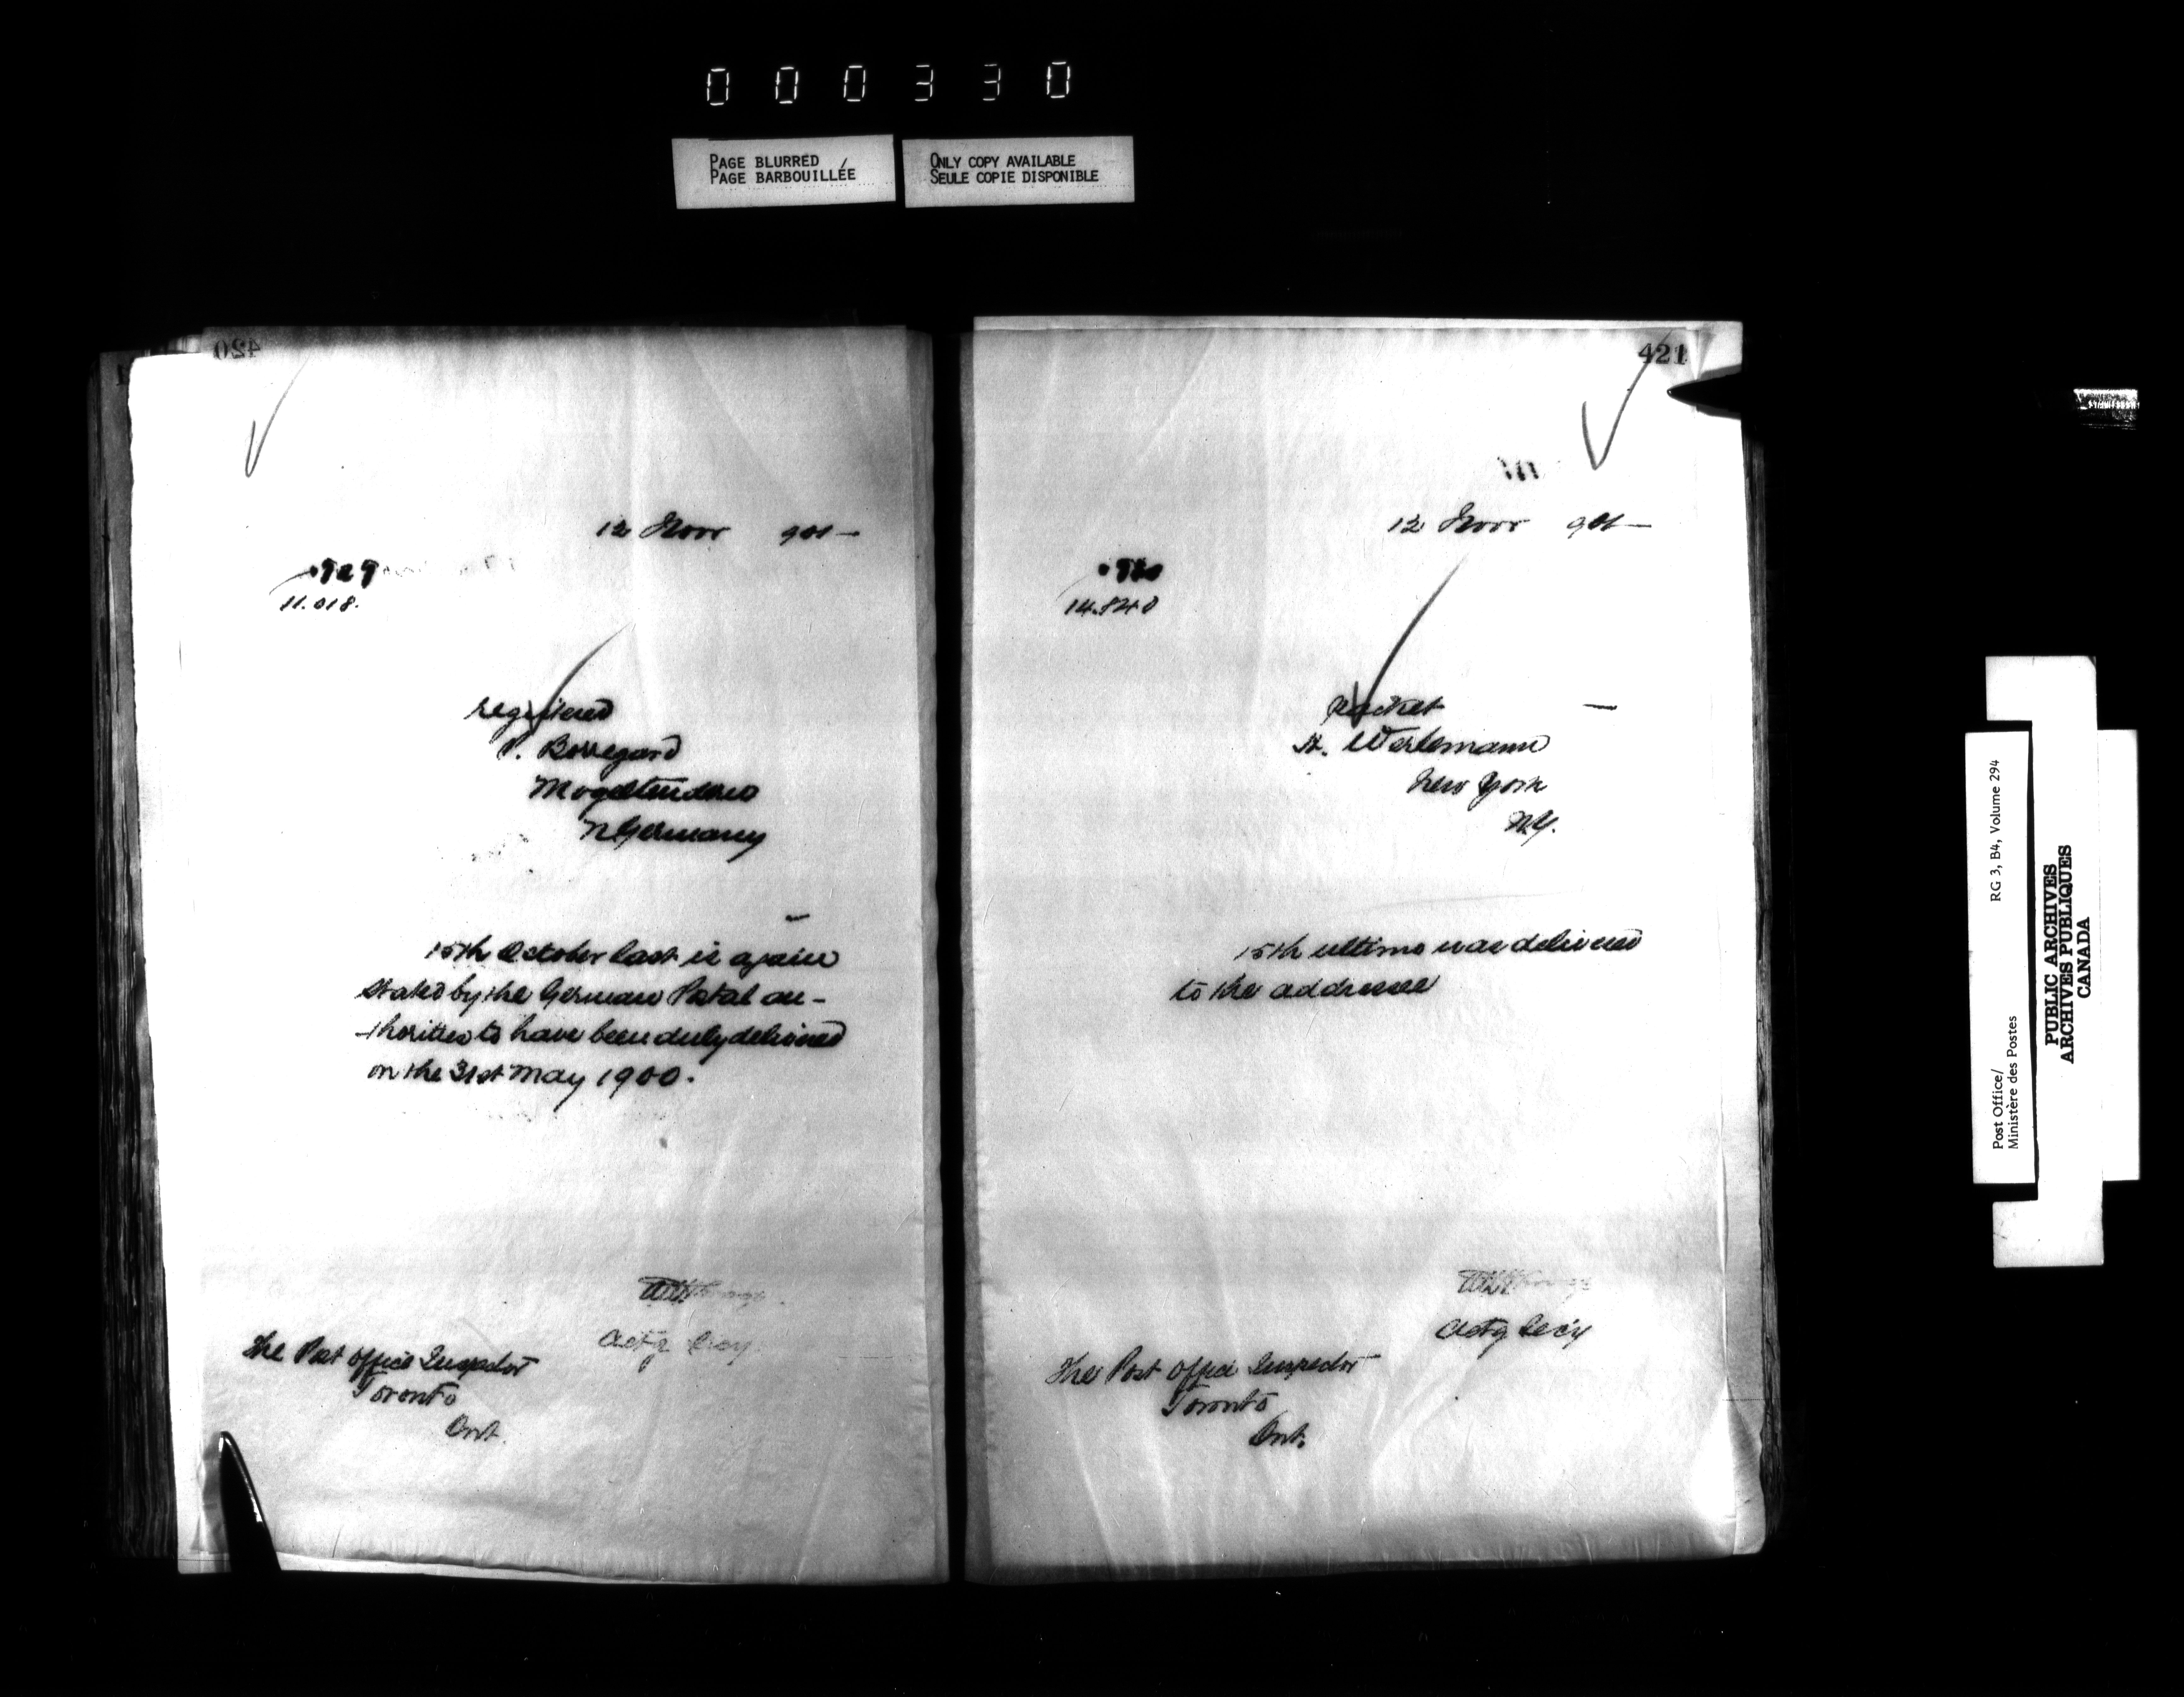 000330
PAGE BLURRED
PAGE BARBOUILLÉE
ONLY COPY AVAILABLE
SEULE COPIE DISPONIBLE
420
12 Novr 901—
11.018.
registered
P. Borregard
N Germany
15th October last is again
stated by the German Postal au-
-thorities to have been duly delivered
on the 31st May 1900.
Actg Secy.
The Post Office Inspector
Toronto
Ont.
421
12 Novr 901—
14.840
packet —
New York
N.Y.
15th ultimo was delivered
to the addressee
Actg Secy
The Post Office Inspector
Toronto
Ont.
Post Office/
Ministère des Postes
RG 3, B4, Volume 294
PUBLIC ARCHIVES
ARCHIVES PUBLIQUES
CANADA